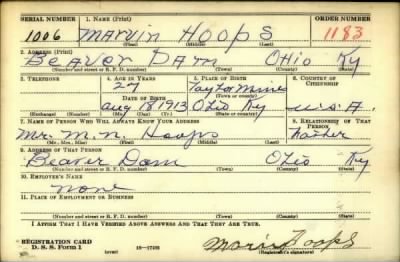 SERIAL NUMBER 1. NAME (Print) ORDER NUMBER
1006 Marvin Hoops 1183
(First) (Middle) (Last)
2. ADDRESS (Print)
Beaver Dam Ohio Ky
(Number and street or R. F. D. number) (Town) (County) (State)
3. TELEPHONE 4. AGE IN YEARS 5. PLACE OF BIRTH 6. COUNTRY OF CITIZENSHIP
27 Taylor Mines
DATE OF BIRTH (Town or county)
Aug 18 1913 Ohio Ky U.S.A.
(Exchange) (Number) (Mo.) (Day) (Yr.) (State or country)
7. NAME OF PERSON WHO WILL ALWAYS KNOW YOUR ADDRESS 8. RELATIONSHIP OF THAT PERSON
Mr. M. N. Hoops Father
(Mr., Mrs., Miss) (First) (Middle) (Last)
9. ADDRESS OF THAT PERSON
Beaver Dam Ohio Ky
(Number and street or R. F. D. number) (Town) (County) (State)
10. EMPLOYER'S NAME
None
11. PLACE OF EMPLOYMENT OR BUSINESS
(Number and street or R. F. D. number) (Town) (County) (State)
I AFFIRM THAT I HAVE VERIFIED ABOVE ANSWERS AND THAT THEY ARE TRUE.
REGISTRATION CARD
D. S. S. Form 1 (over) 16-17105 Marvin Hoops
(Registrant's signature)